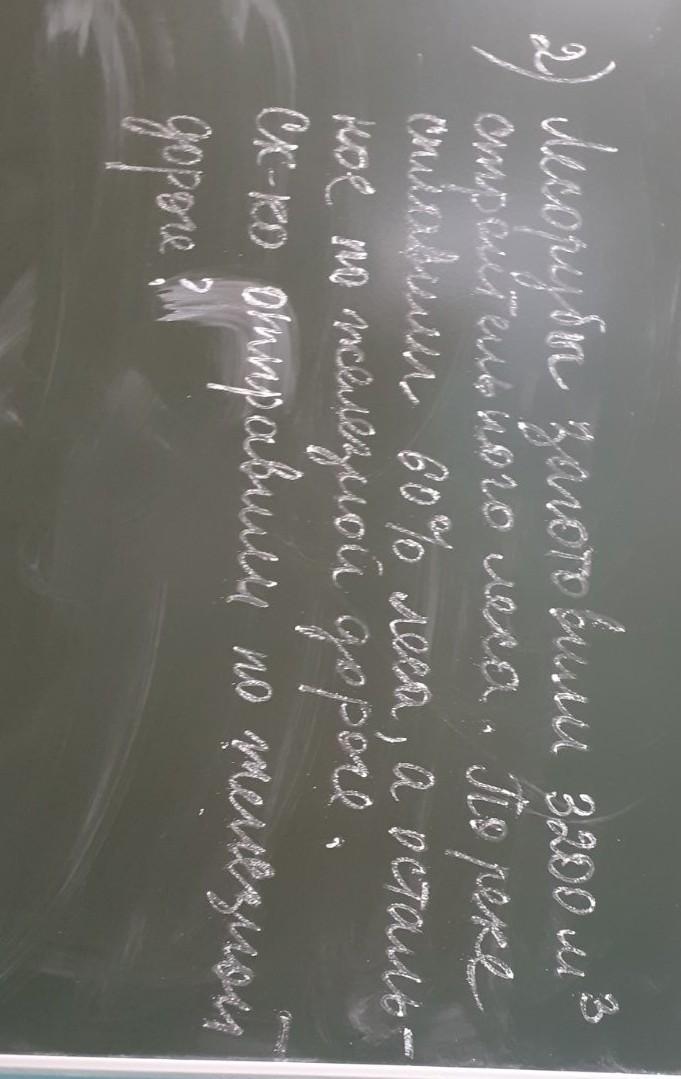 2) Лесорубы заготовили 3200 м³
строительного леса. По реке
сплавили 60% леса, а осталь-
ное по железной дороге.
Ск-ко отправили по железной
дороге?